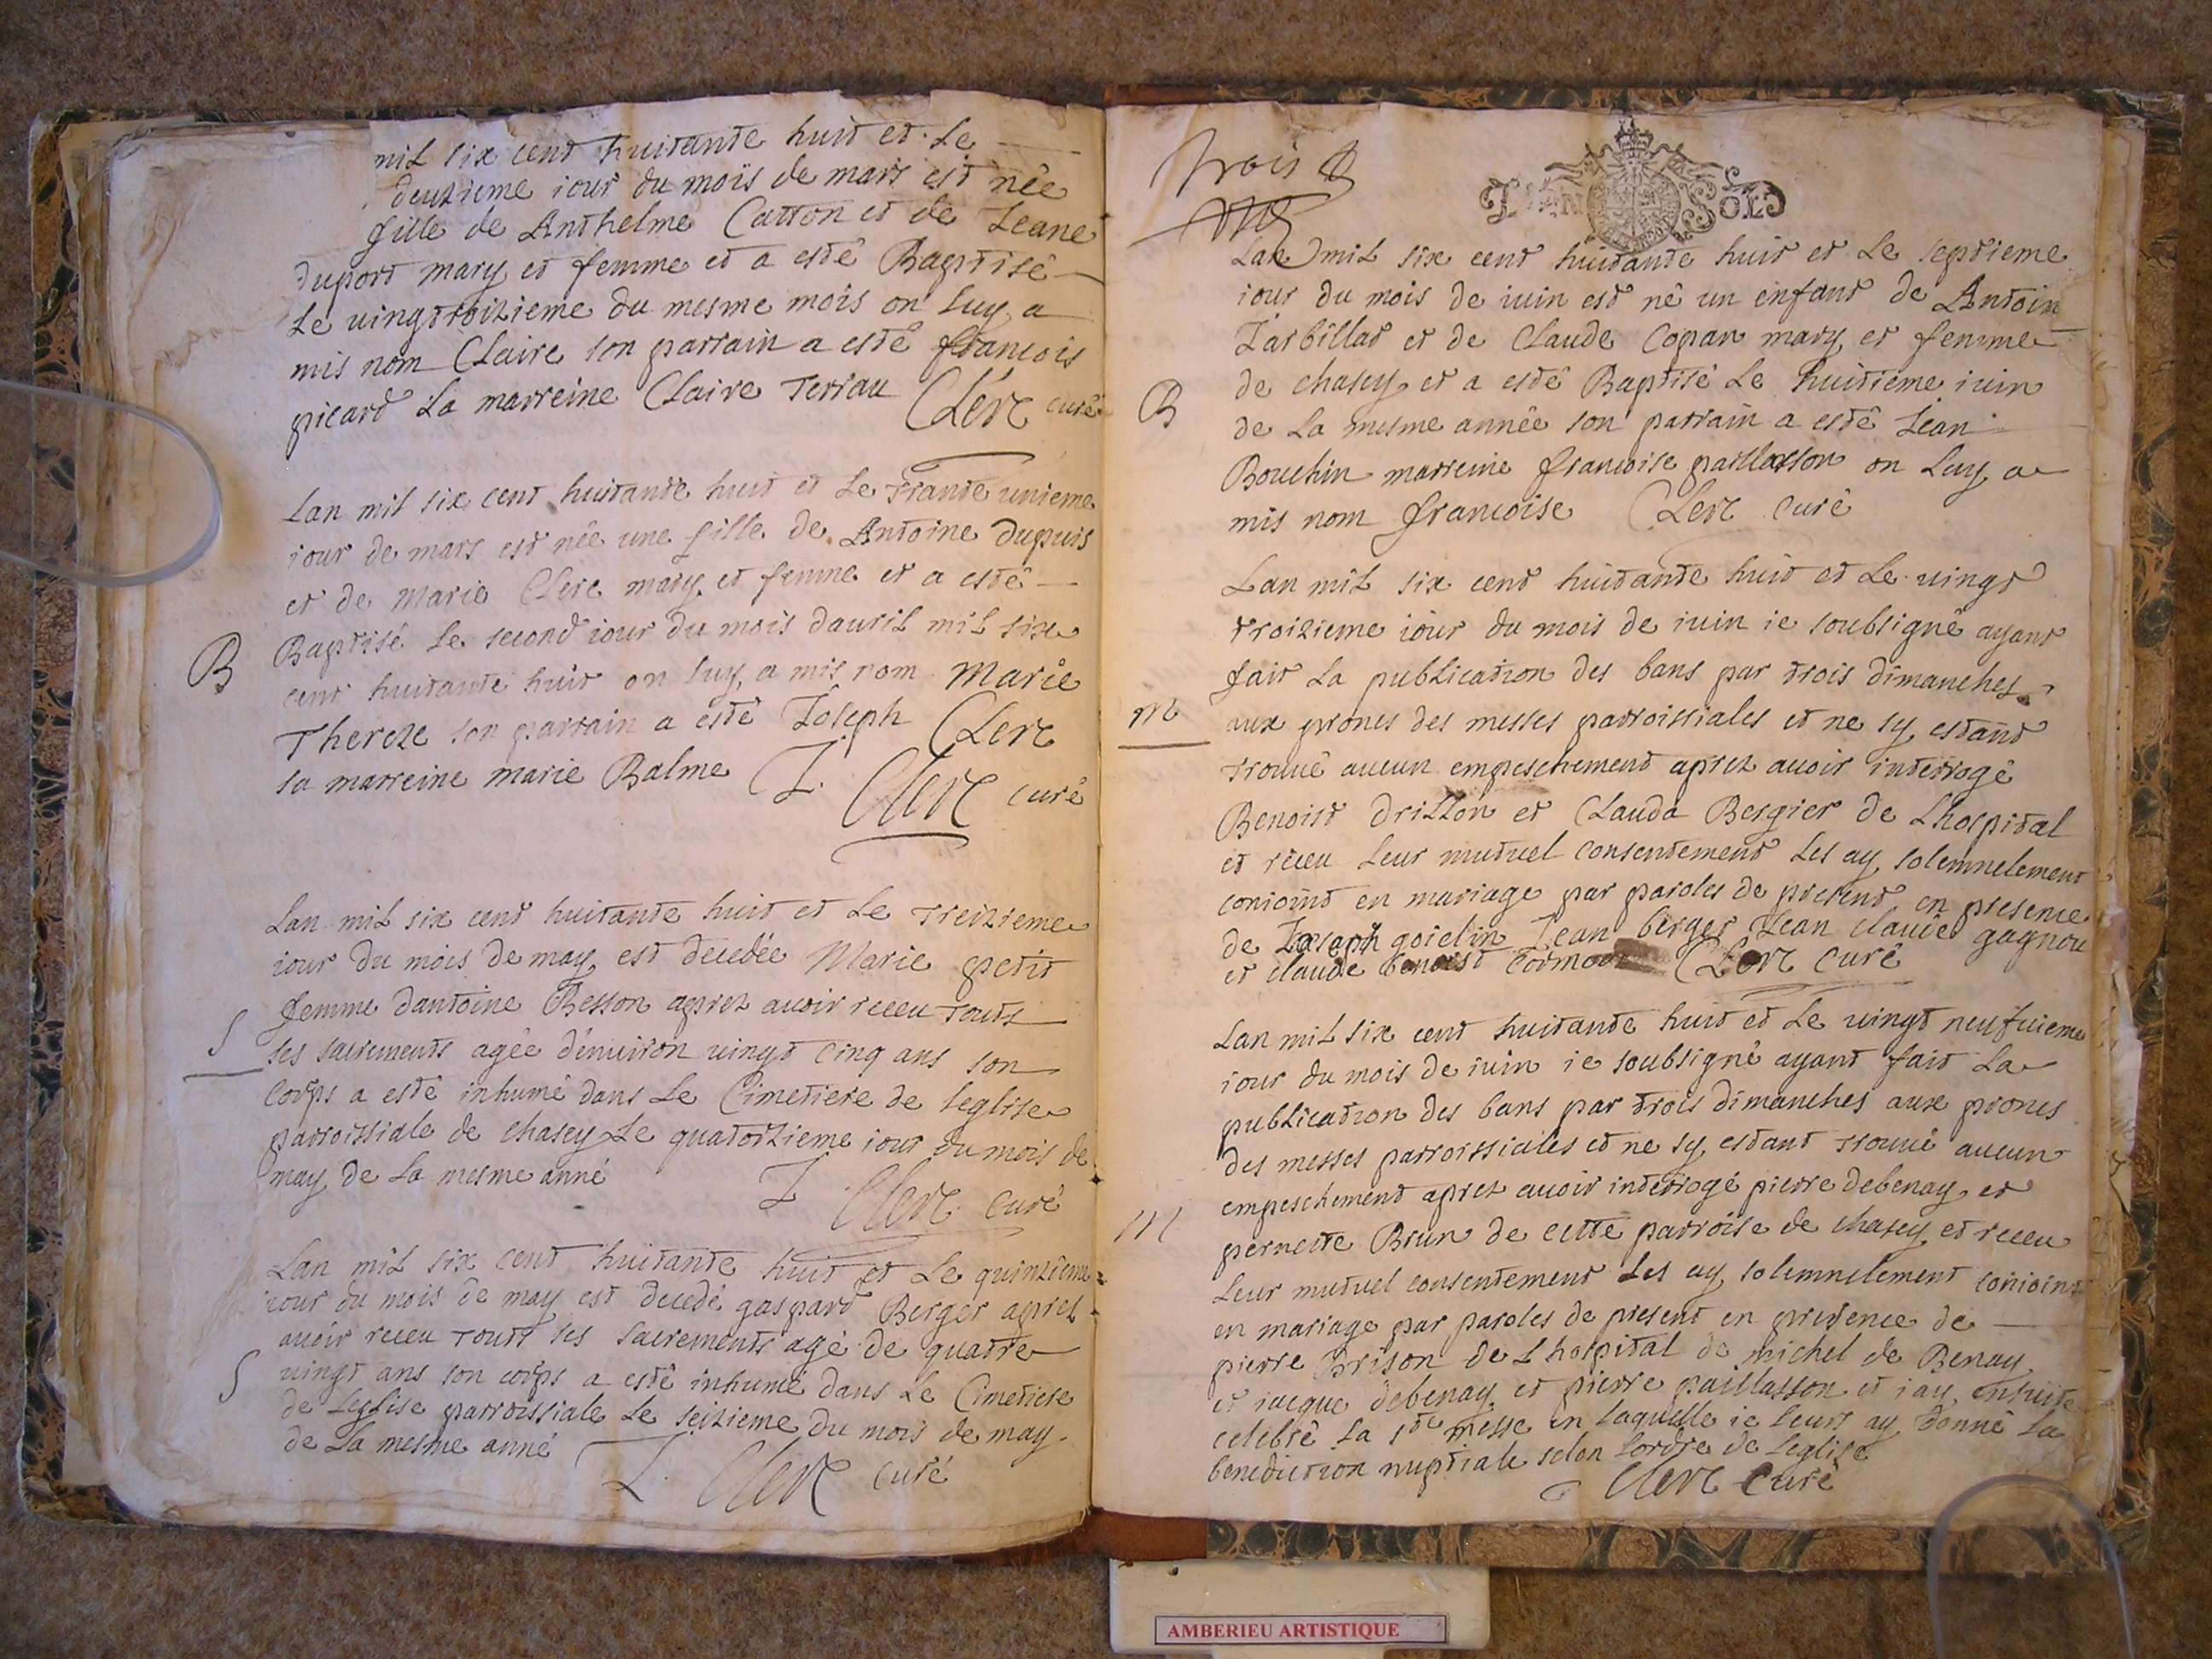 mil six cent huitante huit et le
deuxieme iour du mois de mars est nêe
fille de Anthelme Catton et de Ieane
duport mary et femme et a estê Baptisê
Le uingtroizieme du mesme mois on luy a
mis nom Claire son parrain a estê francois
picard La marreine Claire Terrau Clerc curê
Lan mil six cent huitante huit et Le trante unieme
iour de mars est nêe une fille de Antoine Dupuis
et de Marie Clerc mary et femme et a estê
B
Baptisé Le second iour du mois dauril mil six
cent huitante huit on luy a mis nom Marie
Thereze son parrain a estê Ioseph Clerc
sa marreine marie Balme I. Clerc curê
Lan mil six cent huitante huit et Le treizieme
iour du mois de may est decedêe Marie petit
femme dantoine Besson aprez auoir receu touts
S
ses sacrements agêe dénuiron uingt cinq ans son
Corps a estê inhumê dans Le Cimetiere de leglise
parroissiale de chasey Le quatorzieme iour du mois de
may de La mesme anné
I Clerc Curé
Lan mil six cent huitante huit et Le quinzieme
iour du mois de may est decedé gaspard Berger aprez
auoir receu touts ses sacrements agé de quatre
S
uingt ans son corps a estê inhumé dans Le Cimetiere
de Leglise parroissiale Le seizieme du mois de may
de La mesme anné
I Clerc curé
Trois &
GEN SOLD
Lan mil six cent huitante huit et Le septieme
iour du mois de iuin est nê un enfant de Antoin
Iarbillat et de Claude Copan mary et femme
de chasey et a estê Baptisé Le huitieme iuin
B
de La mesme annêe son parrain a estê Iean
Bouchin marreine francoise paillasson on Luy a
mis nom francoise Clerc Curê
Lan mil six cent huitante huit et Le uingt
troizieme iour du mois de iuin ie soubsignê ayant
fait La publication des bans par trois dimanches
m
aux prones des messes parroissiales et ne sy estant
trouuê aucun empeschement aprez auoir interrogê
Benoist Drillon et Clauda Bergier de Lhospital
et receu Leur mutuel consentement Les ay solemnelement
conioint en mariage par paroles de present en presence
de Ioseph goiclin Iean berger Iean claude gagnou
et claude benoist Clerc curê
Lan mil six cent huitante huit et Le uingt neufuieme
iour du mois de iuin ie soubsigné ayant fait La
publication des bans par trois dimanches aux prones
des messes parroissiales et ne sy estant trouué aucun
empeschement aprez auoir interrogé pierre debenay et
M
pernette Brun de cette parroise de chasey et receu
Leur mutuel consentement Les ay solemnelement conioint
en mariage par paroles de present en presence de
pierre Brison de Lhospital de michel de Benay
et iacque debenay et pierre paillasson et iay ensuite
celebrê La ste messe en laquelle ie leurs ay donnê La
benediction nuptiale selon Lordre de Leglise
Clerc Curê
AMBERIEU ARTISTIQUE